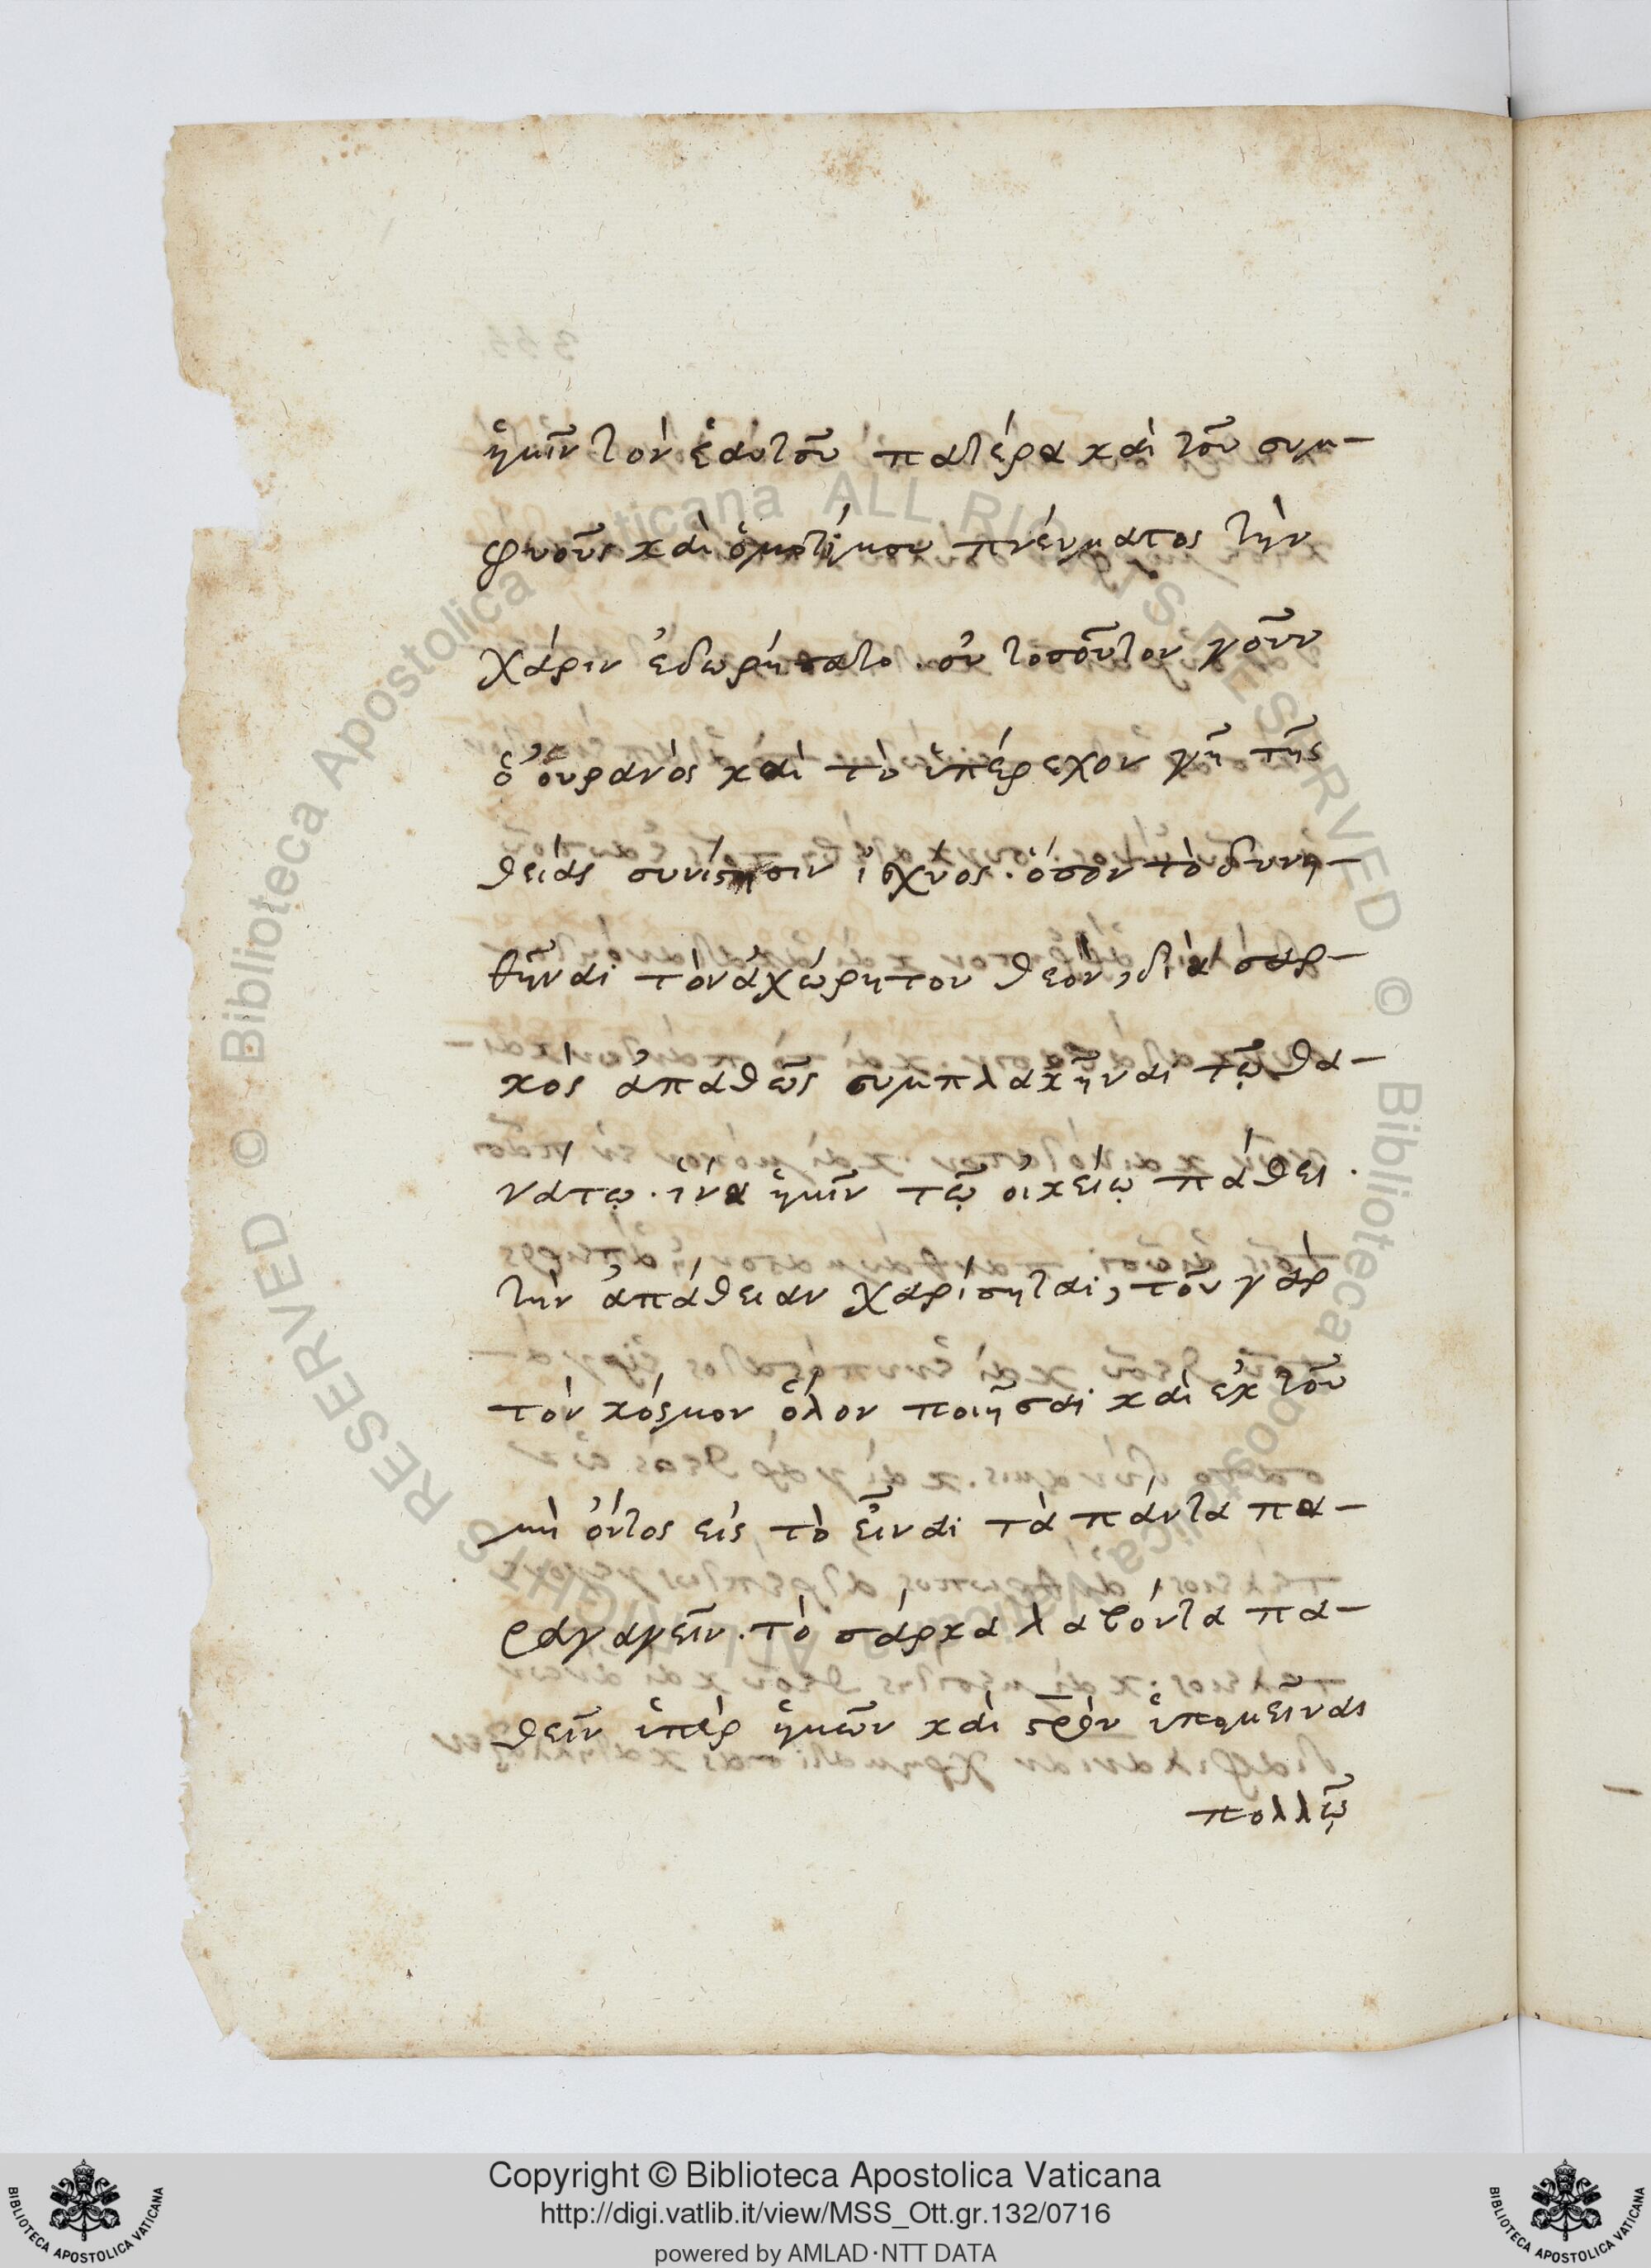 ἡμῖν τὸν ἑαυτοῦ πατέρα καὶ τοῦ συμ-
φυοῦς καὶ ὁμοτίμου πνεύματος τὴν
χάριν ἐδωρήσατο. οὐ τοσοῦτον γοῦν
ὁ οὐρανὸς καὶ τὸ ὑπέρεχον γῆ τῆς
θείας συνίστησιν ἰσχύος. ὅσον τὸ δυνη-
θῆναι τὸν ἀχώρητον θεὸν, διὰ σαρ-
κὸς ἀπαθῶς συμπλακῆναι τῷ θα-
νάτῳ. ἵνα ἡμῖν τῷ οἰκείῳ πάθει.
τὴν ἀπάθειαν χαρίσηται, τοῦ γὰρ
τὸν κόσμον ὅλον ποιῆσαι καὶ ἐκ τοῦ
μὴ ὄντος εἰς τὸ εἶναι τὰ πάντα πα-
ραγαγεῖν. τὸ σάρκα λαβόντα πα-
θεῖν ὑπὲρ ἡμῶν καὶ σ̅ρ̅ὸν ὑπομεῖναι
πολλῷ
Copyright © Biblioteca Apostolica Vaticana
http://digi.vatlib.it/view/MSS_Ott.gr.132/0716
powered by AMLAD·NTT DATA
BIBLIOTECA APOSTOLICA VATICANA
BIBLIOTECA APOSTOLICA VATICANA
© Biblioteca Apostolica Vaticana ALL RIGHTS RESERVED
© Biblioteca Apostolica Vaticana ALL RIGHTS RESERVED